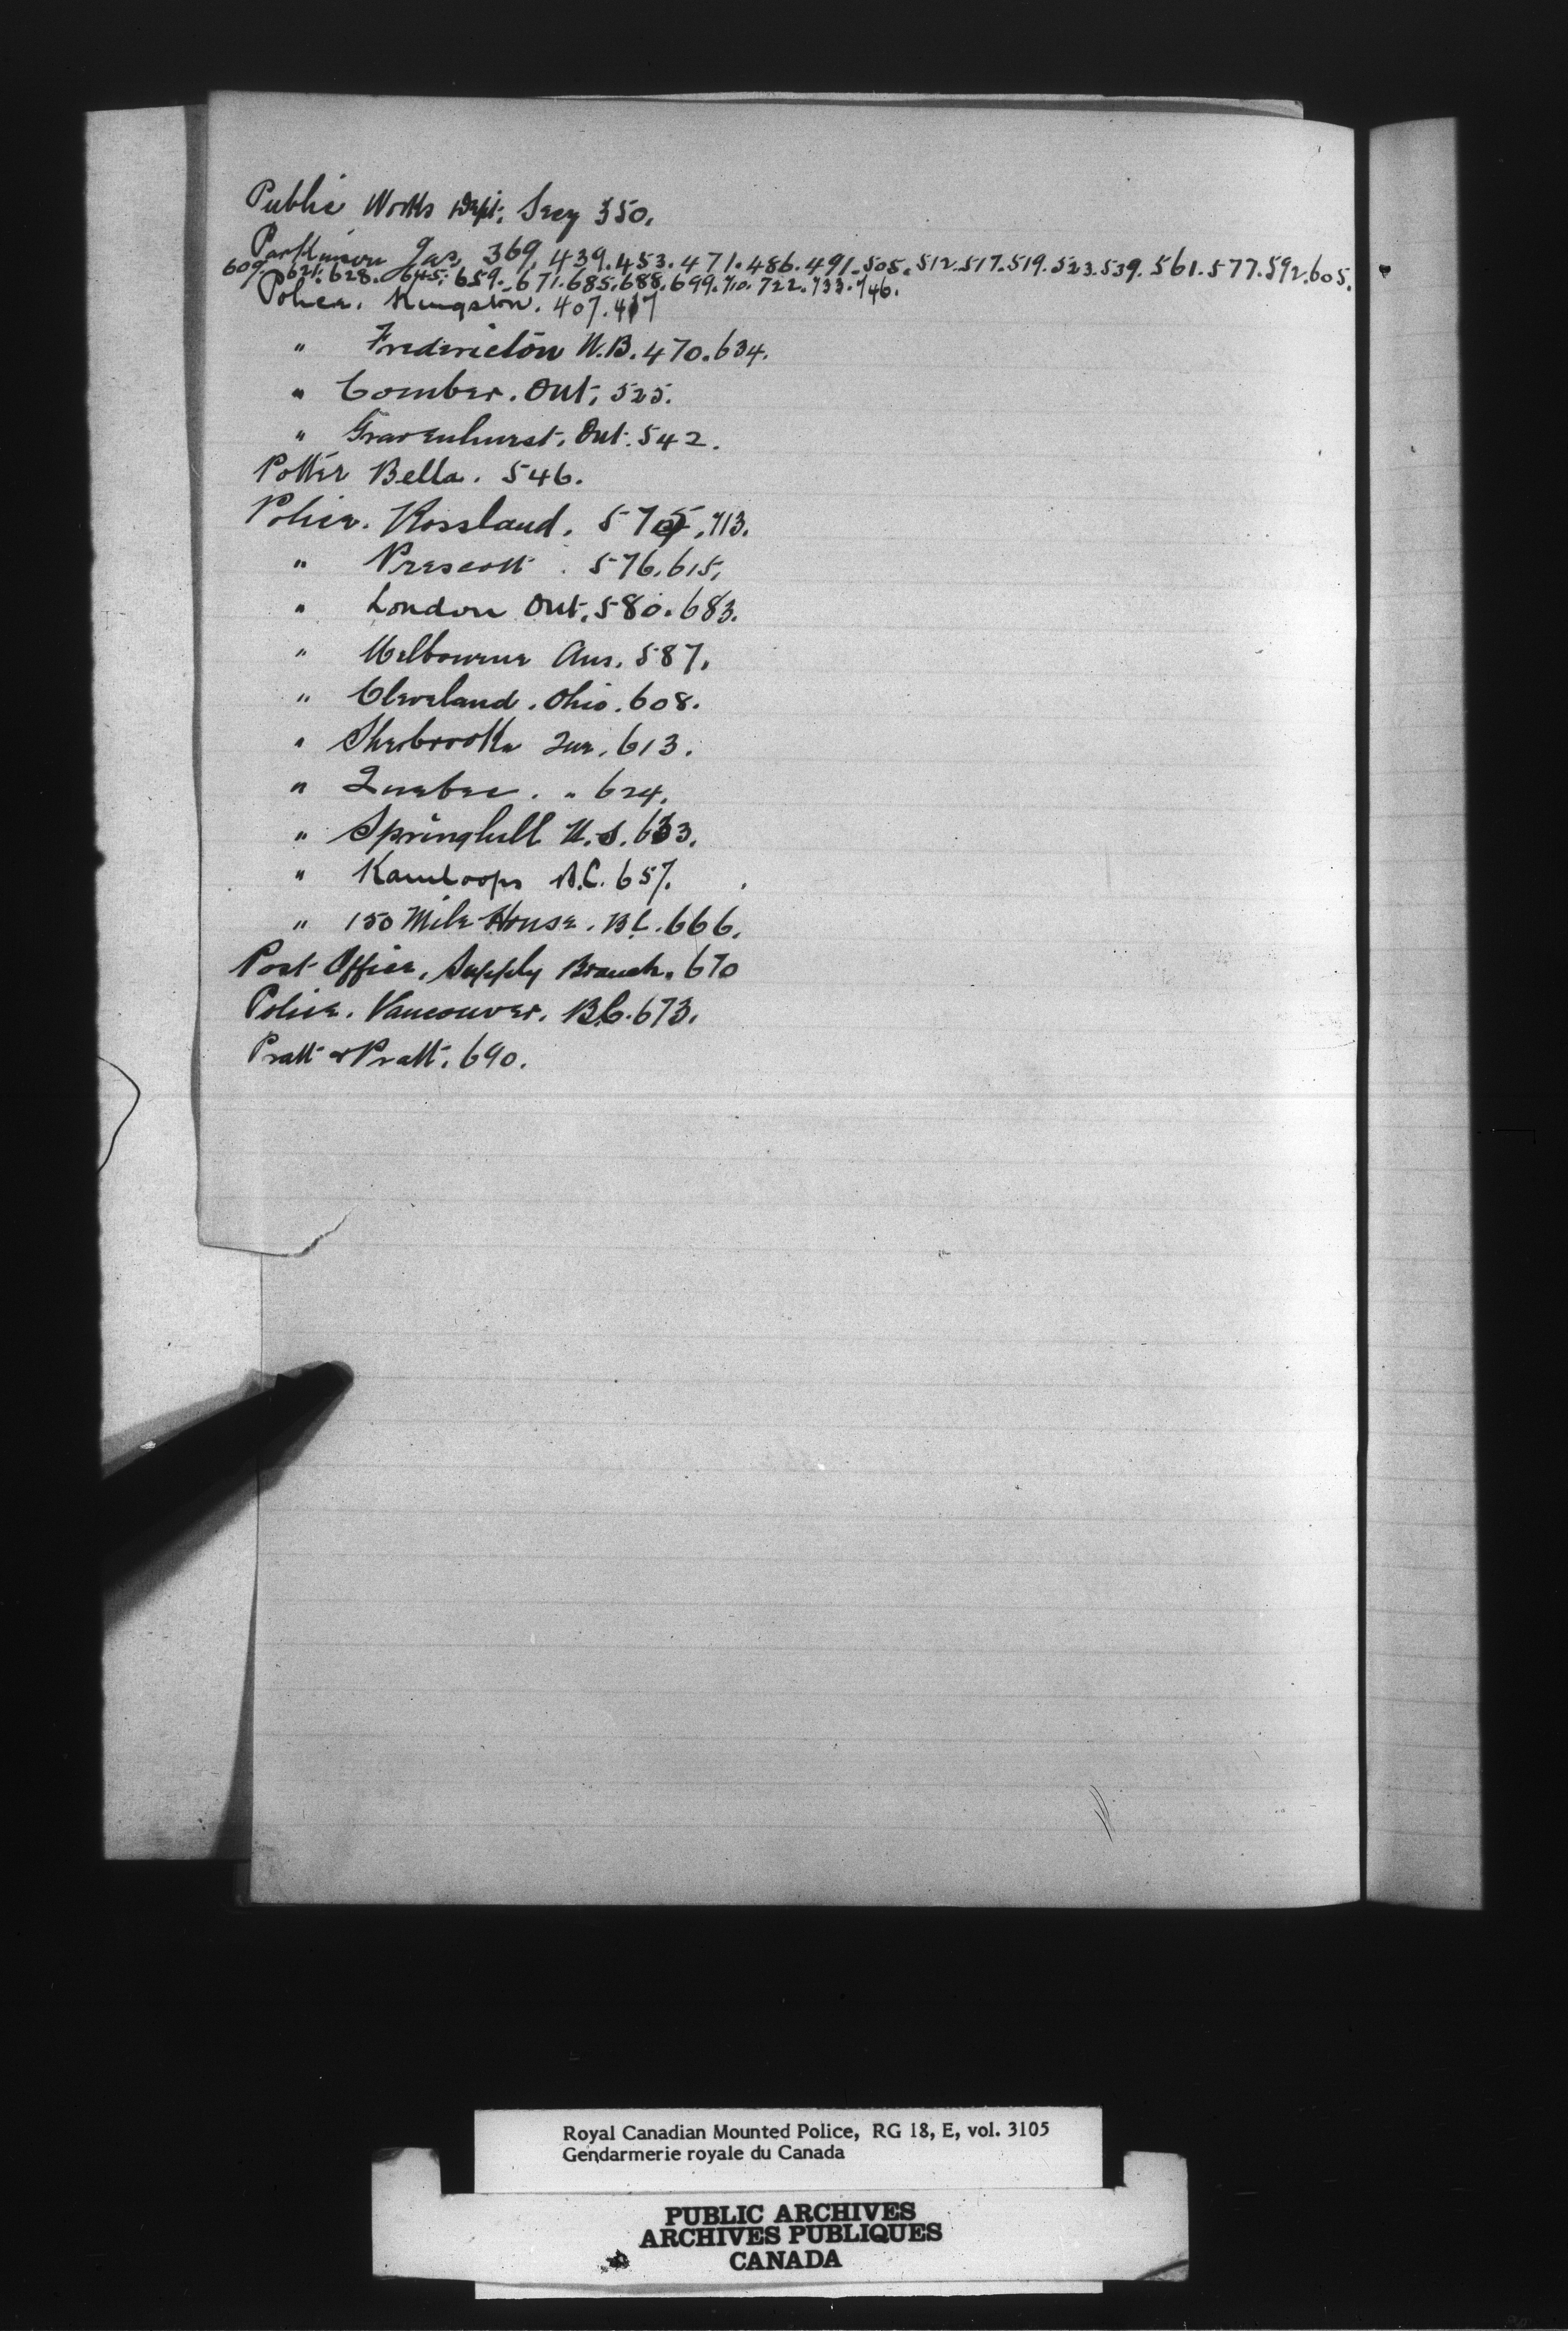 Public Works Dept. Secy 350.
Parkinson Jas, 369, 439. 453. 471. 486. 491. 505. 512. 517. 519. 523. 539. 561. 577. 592. 605.
609. 621. 628. 645. 659. 671. 685. 688. 699. 710. 722. 733. 746.
Police. Kingston. 407. 417
" Fredericton N.B. 470. 634.
" Comber. Ont. 525.
" Gravenhurst. Ont. 542.
Potter Bella. 546.
Police. Rossland. 575. 713.
" Prescott. 576. 615.
" London Ont. 580. 683.
" Melbourne Aus. 587.
" Cleveland. Ohio. 608.
" Sherbrooke Que. 613.
" Quebec. " 624.
" Springhill N.S. 633.
" Kamloops B.C. 657.
" 150 Mile House. B.C. 666.
Post Office, Supply Branch. 670
Police. Vancouver. B.C. 673.
Pratt & Pratt. 690.
Royal Canadian Mounted Police, RG 18, E, vol. 3105
Gendarmerie royale du Canada
PUBLIC ARCHIVES
ARCHIVES PUBLIQUES
CANADA